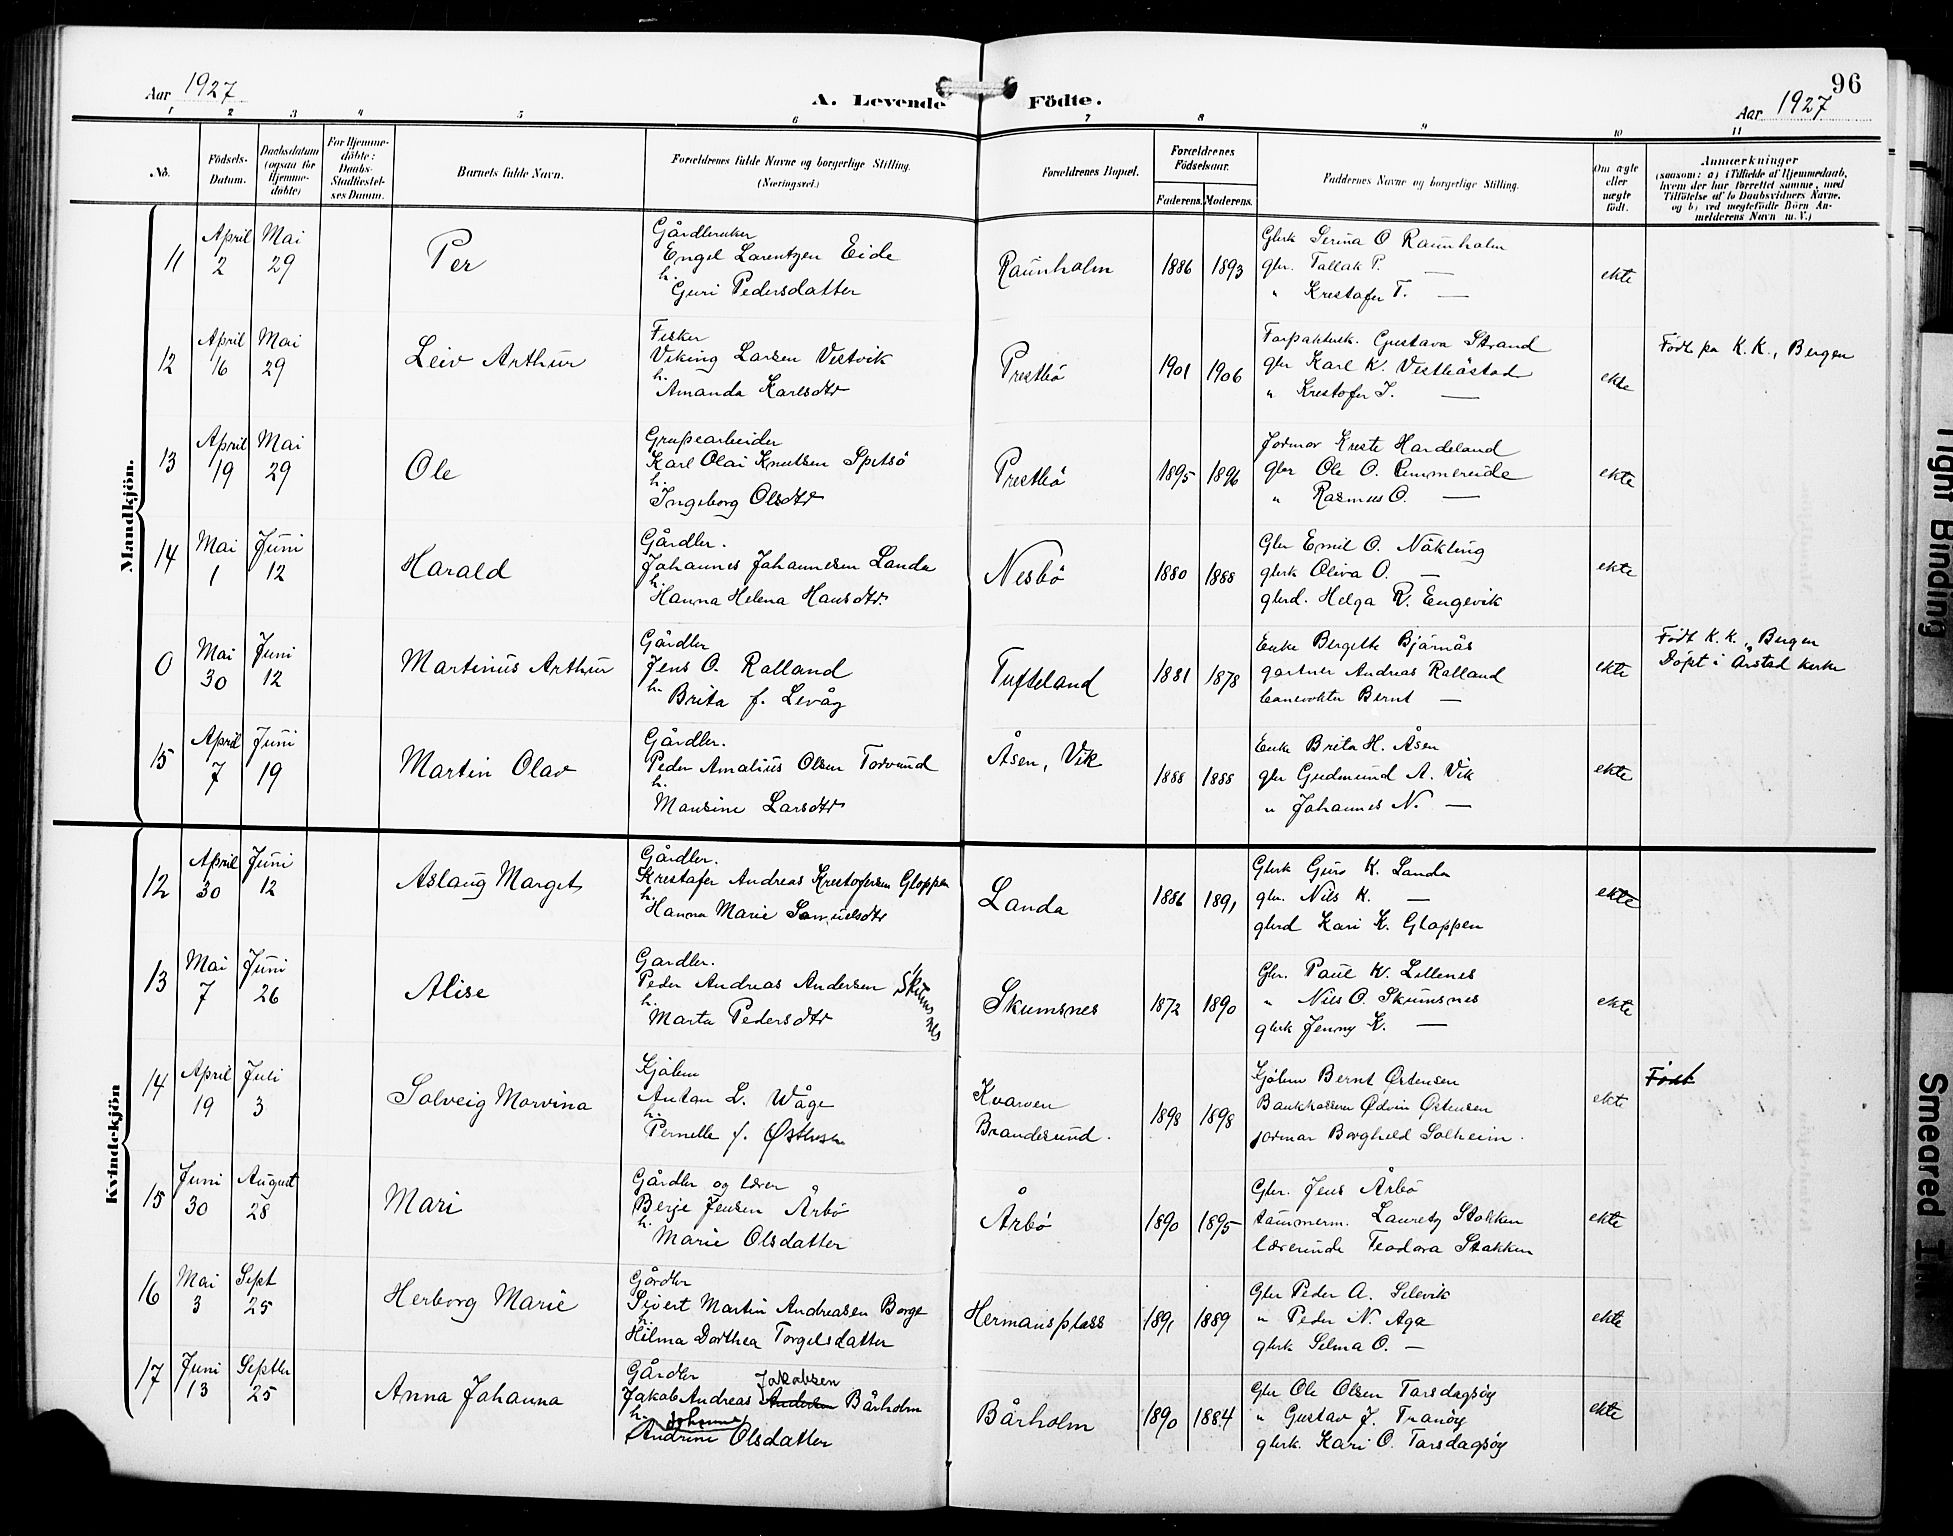 96
Aar 1927
A. Levende Födte.
Aar 1927
1 2 3 4 5 6 7 8 9 10 11
No.
Födsels-Datum.
Daabsdatum (ogsaa for Hjemme-döbte)
For Hjemme-döbte: Daabs-Stadfæstel-ses Datum.
Barnets fulde Navn.
Forældrenes fulde Navne og borgerlige Stilling. (Næringsvei.)
Forældrenes Bopæl.
Forældrenes Födselsaar.
Faderens. Moderens.
Faddernes Navne og borgerlige Stilling.
Om ægte eller uægte født.
Anmærkninger
(saasom: a) i Tilfælde af Hjemmedaab, hvem der har forrettet samme, med Tilföielse af to Daabsvidners Navne, og b) ved uægtefödte Börn An-melderens Navn m. V.)
Mandkjön.
11
April 2
Mai 29
Per
Gårdbruker
Engel Larentzen Eide
h.
Guri Pedersdatter
Raunholm
1886 1893
Glerk Serina O Raunholm
gbr. Tallak P. —
" Krestafer T. —
ekte
12
April 16
Mai 29
Leiv Arthur
Fisker
Viking Larsen Vestvik
h.
Amanda Karlsdtr
Prestbö
1901 1906
Forpakterk. Gustava Strand
gbr Karl K. Vestbøstad
" Krestofer J. —
ekte
Født på K.K., Bergen
13
April 19
Mai 29
Ole
Grubearbeider
Karl Olai Knutsen Spitsö
h.
Ingeborg Olsdtr
Prestbö
1895 1896
Jormor Kreste Hardeland
gbr Ole O. Rimmereide
" Rasmus O. —
ekte
14
Mai 1
Juni 12
Harald
Gårdbr.
Johannes Johannesen Landa
h.
Hanna Helena Hansdtr.
Nesbö
1880 1888
Gbr Emil O. Nökling
gbrk Oliva O. —
gbrd. Helga R. Engevik
ekte
0
Mai 30
Juni 12
Martinus Arthur
Gårdbr
Jens O. Ralland
h.
Brita f. Levåg
Tufteland
1881 1878
Enke Bergette Bjørnås
gartner Andreas Ralland
Bernt —
ekte
Født K.K., Bergen
Döpt i Årstad kirke
15
April 7
Juni 19
Martin Olav
Gårdbr.
Peder Amalius Olsen Torvund
h.
Mansine Larsdtr
Åsen, Vik
1888 1888
Enke Brita H. Åsen
gbr Gudmund A. Vik
" Johannes N. —
ekte
Kvindekjön
12
April 30
Juni 12
Aslaug Marget
Gårdbr.
Krestafer Andreas Krestofersen Gloppen
h.
Hanna Marie Samuelsdtr
Landa
1886 1891
Gbrk Guro K. Landa
gbr. Nils K. —
gbrd Kari K. Gloppen
ekte
13
Mai 7
Juni 26
Alise
Gardbr.
Peder Andreas Andersen Skumsnes
h.
Marta Pedersdtr
Skumsnes
1872 1890
Gbr. Paul K. Lillenes
" Nils O. Skumsnes
gbrk Jenny K. —
ekte
14
April 19
Juli 3
Solveig Marvina
Kjøbm
Anton L. Våge
h.
Pernelle f.
Kvarven
Brandesund.
1898 1898
Kjøbm Bernt Østensen
Bankkasserer Ødvin Østensen
jormor Borghild Solheim.
ekte
Født
15
Juni 30
August 28
Mari
Gårdbr og lærer
Berje Jensen Årbö
h.
Marie Olsdatter
Årbö
1890 1895
Gbr. Jens Årbö
tømmerm. Lauretz Stokken
lærerinde Teodora Stokken
ekte
16
Mai 3
Sept 25
Herborg Marie
Gårdbr
Sivert Martin Andreasen Borge
h.
Hilma Dorthea Torgelsdatter
Hermansplass
1891 1889
Gbr Peder A. Selevik
" Peder N. Aga
gbrk Selma O. —
ekte
17
Juni 13
Septbr 25
Anna Johanna
Gårdbr
Jakobsen
Jakob Andreas Andersen Bårholm
h. Johanna
Andrine Olsdatter
Bårholm
1890 1884
Gbr Ole Olsen Tarsdagsøy
" Gustav J. Tranøy
gbrk. Kari O. Tarsdagsøy
ekte
Tight Binding
Smeared Ink